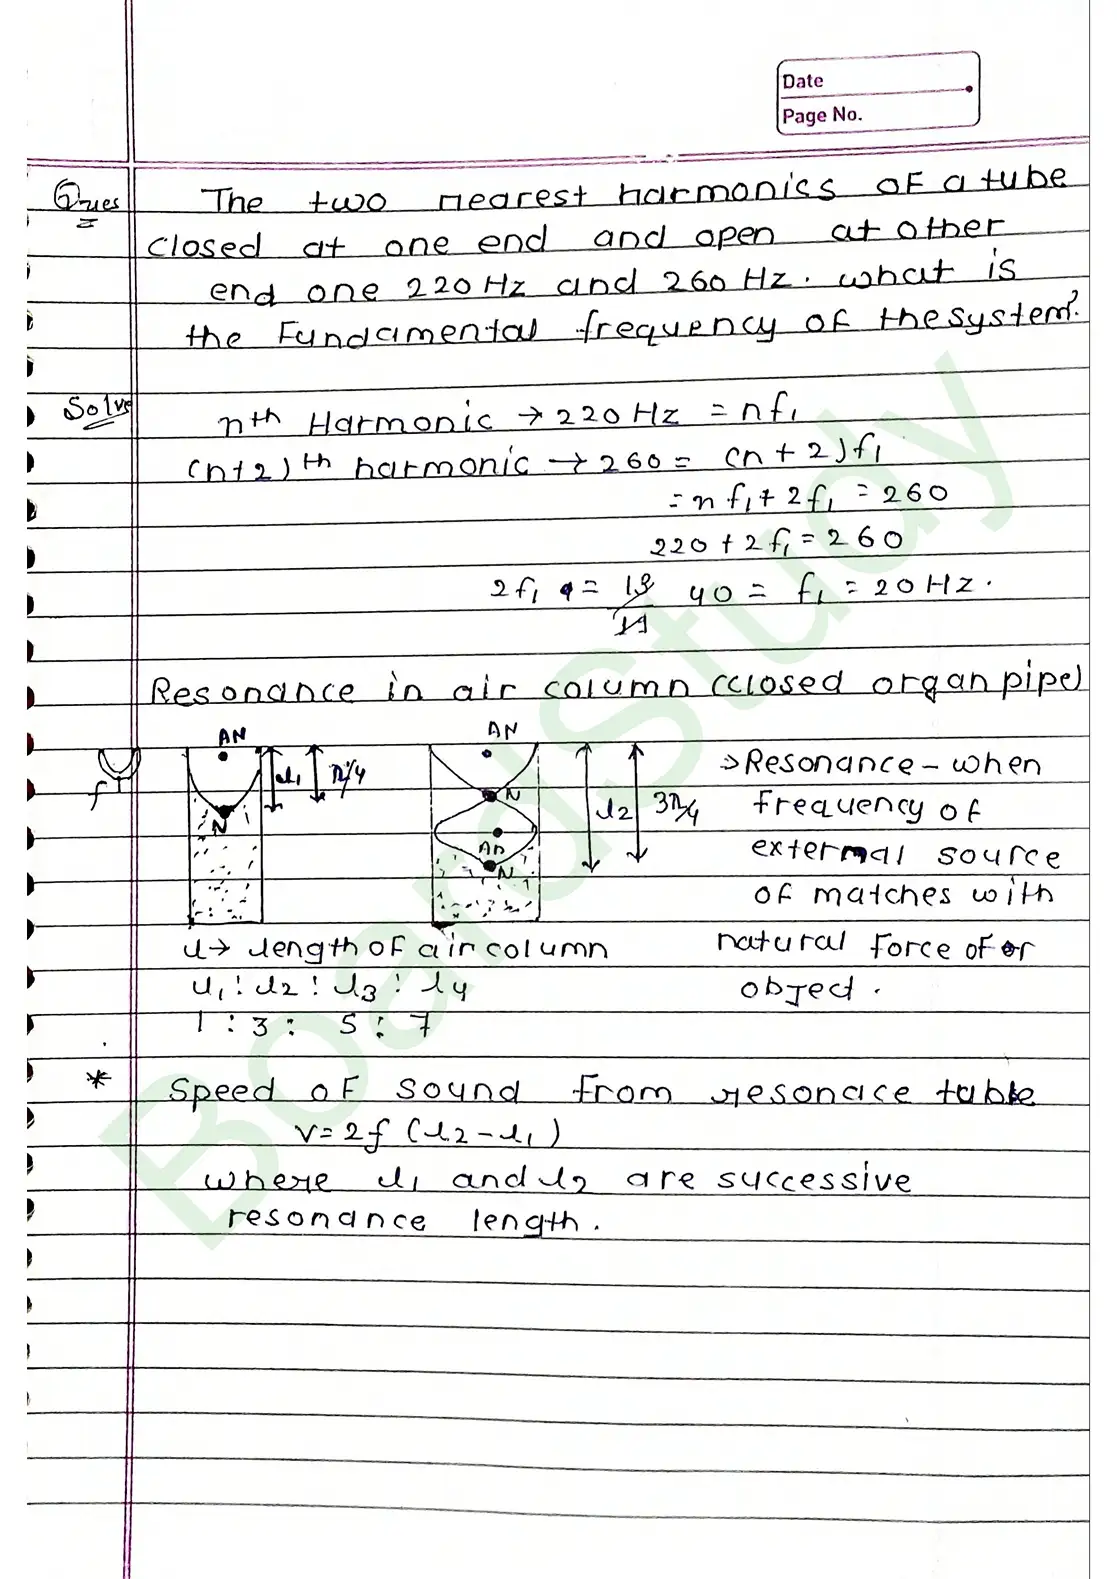 Date
Page No.
Ques The two nearest harmonics of a tube
closed at one end and open at other
end one 220 Hz and 260 Hz. what is
the Fundamental frequency of the system?
Solve nth Harmonic → 220 Hz = nf₁
(n+2)th harmonic → 260 = (n+2)f₁
= nf₁ + 2f₁ = 260
220 + 2f₁ = 260
2f₁ = 40 = f₁ = 20 Hz.
Resonance in air column (closed organ pipe)
AN
AN
f
l₁
λ/4
N
N
AN
N
l₂
3λ/4
→ Resonance - when
frequency of
external source
of matches with
natural force of or
object.
l → length of air column
l₁ : l₂ : l₃ : l₄
1 : 3 : 5 : 7
* Speed of sound from resonace tubbe
v = 2f (l₂ - l₁)
where l₁ and l₂ are successive
resonance length.
BoardStudy